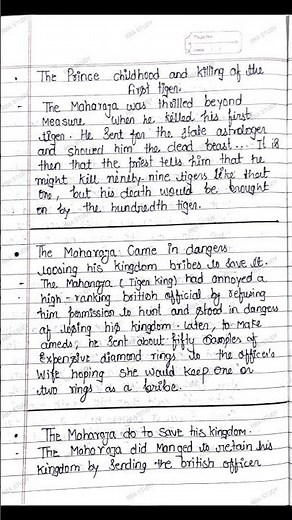 The Prince childhood and killing of the
first tiger.
- The Maharaja was thrilled beyond
measure when he killed his first
tiger. He sent for the state astrologer
and showed him the dead beast... It is
then that the priest tells him that he
might kill ninety-nine tigers like that
one, but his death would be brought
on by the hundredth tiger.
• The Maharaja Came in dangers
loosing his kingdom bribes to save it.
- The Maharaja (Tiger king) had annoyed a
high-ranking british official by refusing
him permission to hunt and stood in dangers
of losing his kingdom. later, to make
ameds, he sent about fifty samples of
Expensive diamond rings to the officer's
Wife hoping she would keep one or
two rings as a bribe.
• The Maharaja do to save his kingdom.
The Maharaja did manged to retain his
kingdom by sending the british officer